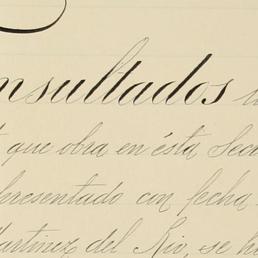 nsultados
que obra en ésta Secre
presentado con fecha
Martinez del Rio, se h